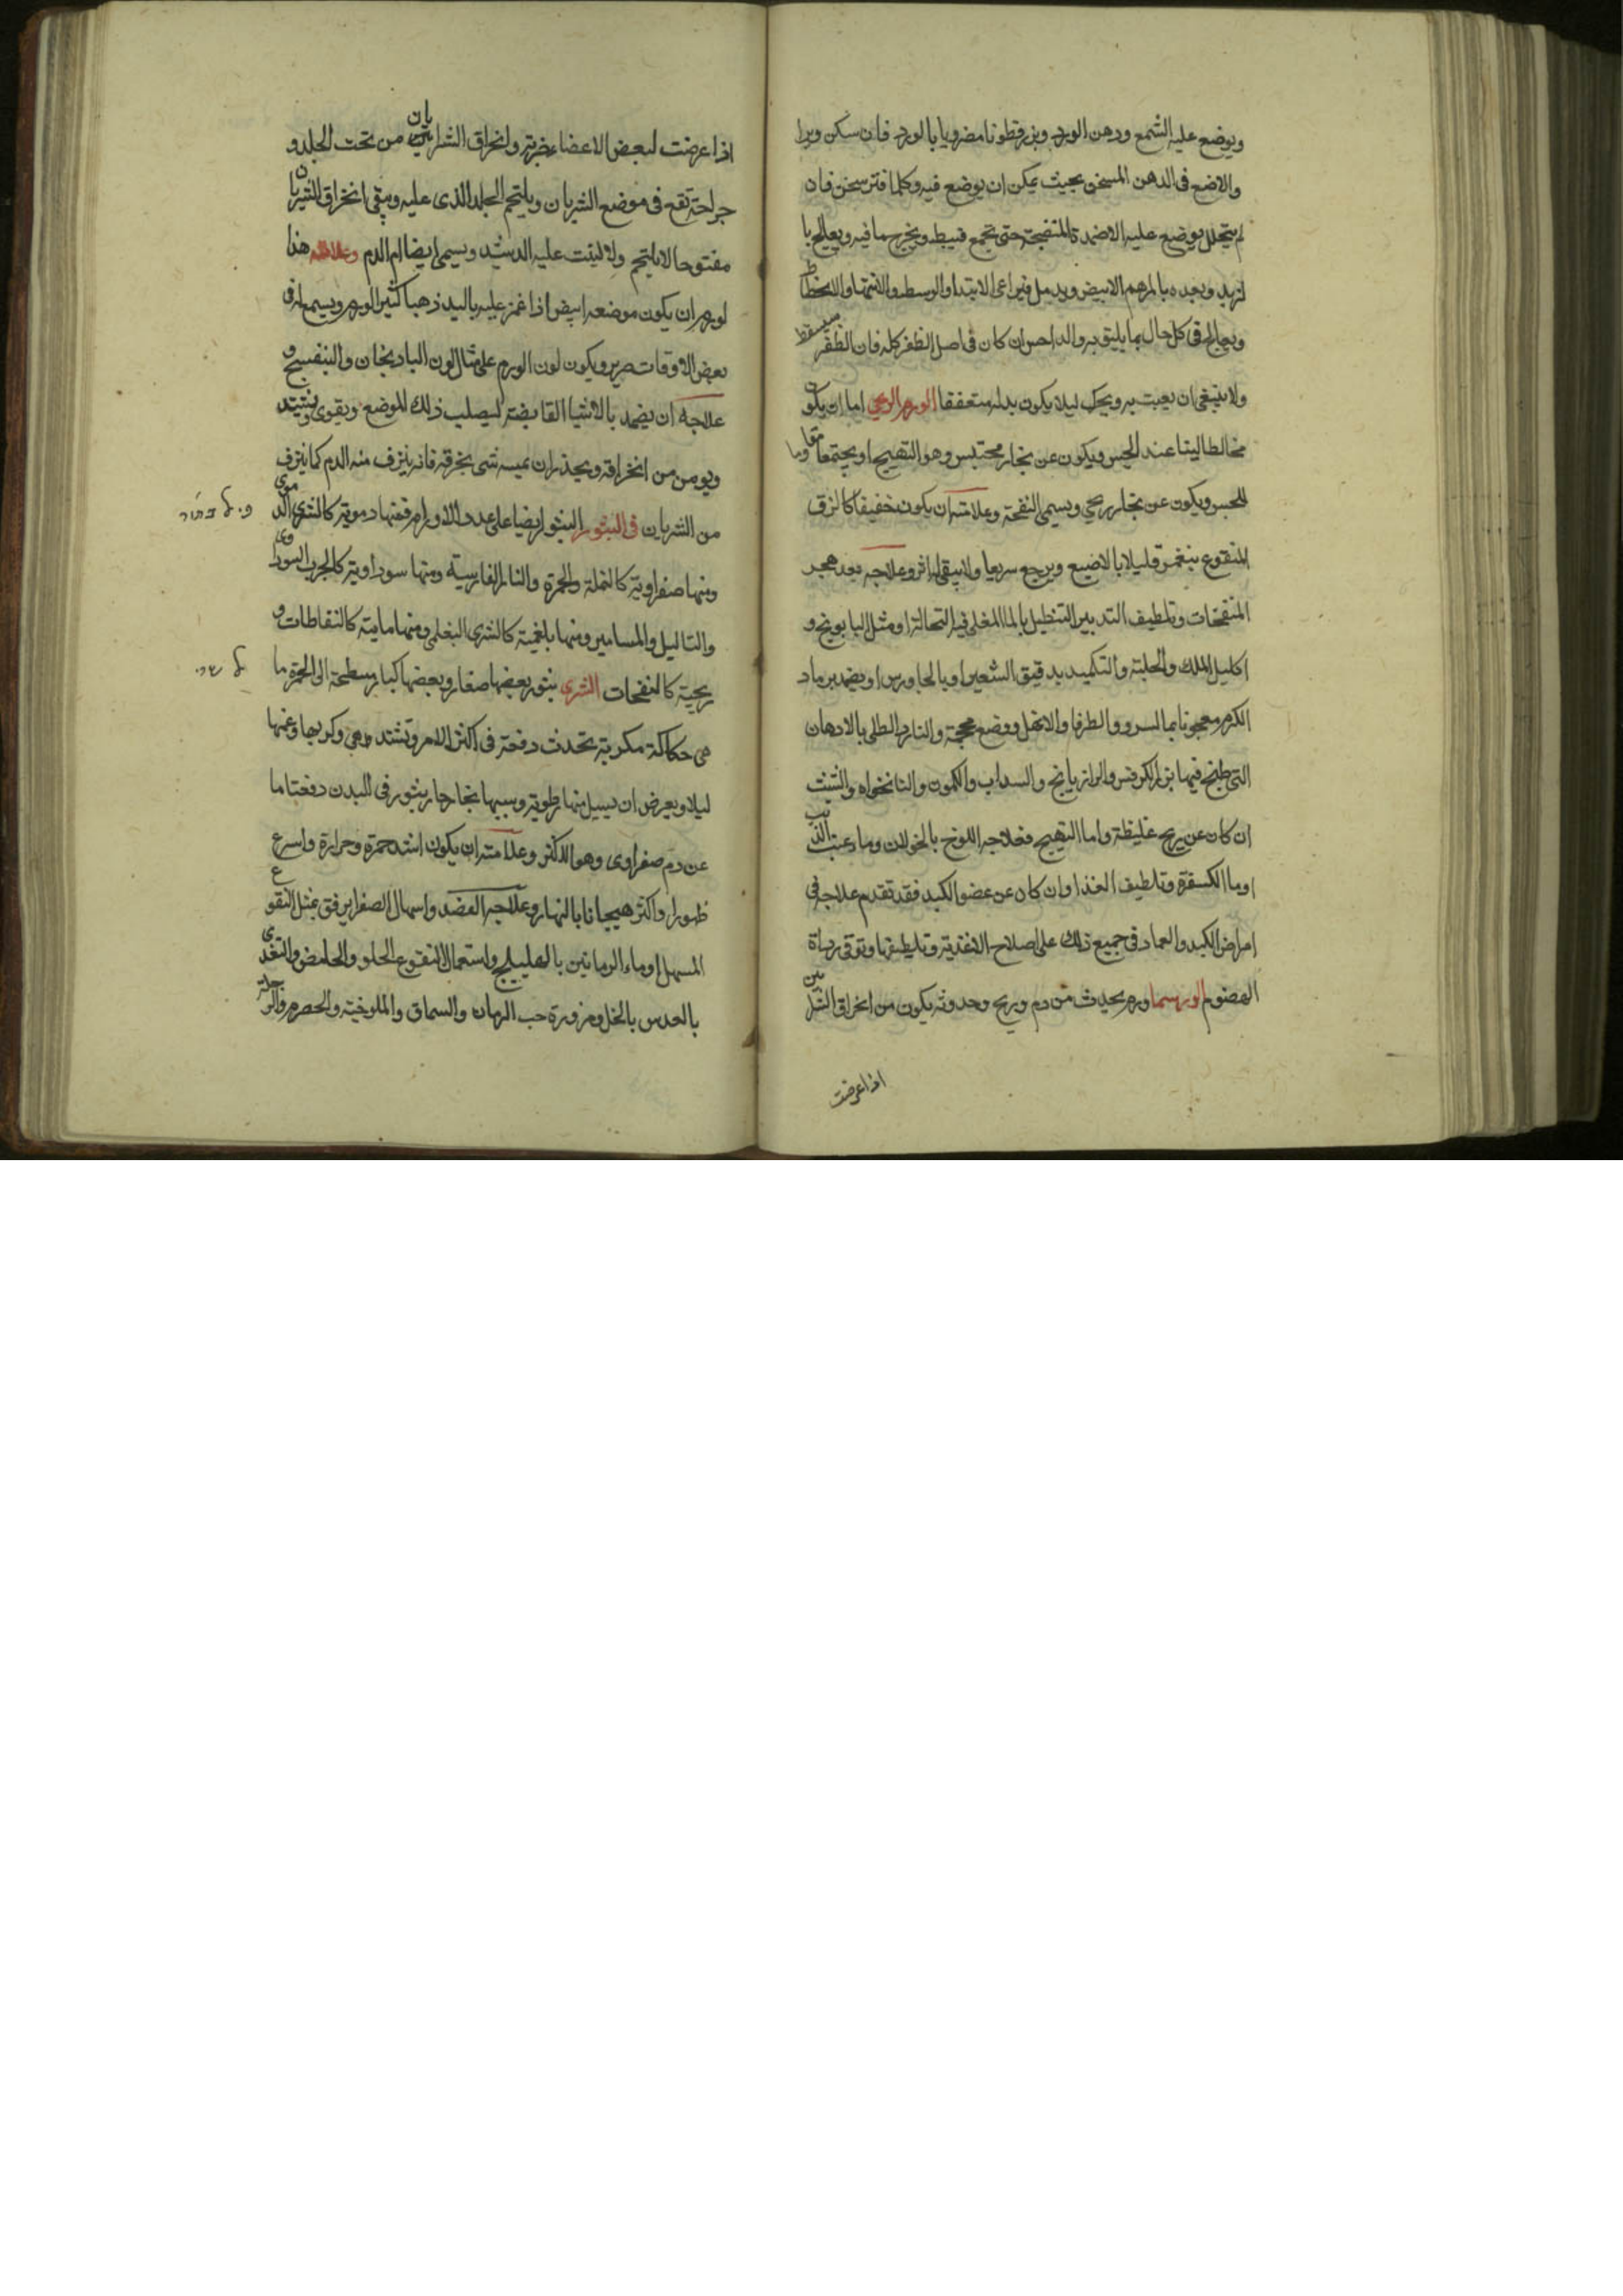 ويوضع عليه الشمع ودهن الورد وبزر قطونا مضروبا بالورد فان سكن وبرا
والا ضع في الدهن المسخن بحيث يمكن ان يوضع فيه وكلما فتر سخن فان
لم يتحلل يوضع عليه الاضمدة المنضجة حتى تجمع فيبط ويخرج ما فيه ويعالج با
لزبد وبعده بالمرهم الابيض ويدمل فيراعى الابتدا والوسط والانتها والانحطاط
ويعالج في كل حال بما يليق به والداحس ان كان في اصل الظفر كله فان الظفر سيسقط
ولا ينبغي ان يعبث به ويحك ليلا يكون بدله متعففا الورم الريحي اما ان يكون
مخالطا لينا عند الجس ويكون عن بخار محتبس وهو التهيج او مجتمعا مقاوما
للجس ويكون عن بخار ريحي ويسمى النفخة وعلامته ان يكون خفيفا كالزق
المنفوخ ينغمز قليلا بالاصبع ويرجع سريعا ولا يبقى له اثر وعلاجه بعد هجر
المنفخات وتلطيف التدبير التنطيل بالما المغلى فيه النخالة او مثل البابونج و
اكليل الملك والحلبة والتكميد بدقيق الشعير او بالجاورس او يضمد برماد
الكرم معجونا بما السرو والطرفا والاثل ووضع محجمة والنار والطلى بالادهان
التى طبخ فيها بزر الكرفس والرازيانج والسداب والكمون والنانخواه والشبت
ان كان عن ريح غليظة واما التهيج فعلاجه اللوخ بالخولان وما عنب الذيب
او ما الكسفرة وتلطيف الغذا وان كان عن عضو الكبد فقد تقدم علاجه في
امراض الكبد والعماد في جميع ذلك على اصلاح الاغذية وتلطيفها وتوقى رداة
الهضوم اورسما ورم يحدث من دم وريح وحدوثه يكون من انخراق الشرايين
اذا عرضت
اذا عرضت لبعض الاعضا ضربة وانخراق الشريان من تحت الجلد و
جراحة تقع في موضع الشريان ويلتحم الجلد الذي عليه ويبقى انخراق الشريان
مفتوحا لا يلتحم ولا لينبت عليه الدشبد ويسمى ايضا ام الدم وعلامة هذا
لورم ان يكون موضعه ابيض اذا غمز عليه باليد ذهبا كثير الورم ويسمع له في
بعض الاوقات صرير ويكون لون الورم على مثال لون الباذنجان والبنفسج و
علاجه ان يضمد بالاشيا القابضة ليصلب ذلك الموضع ويقوى ويشتد
ويومن من انخراقه ويحذر ان يمسه شى يخرقه فانه ينزف منه الدم كما ينزف
من الشريان في البثور البثور ايضا على عدد الاورام فمنها دموية كالشرى الدموى
ومنها صفراوية كالنملة والحمرة والنار الفارسية ومنها سوداوية كالجرب السوداوى
والثاليل والمسامير ومنها بلغمية كالشرى البغلمى ومنها مايية كالنفاطات و
ريحية كالنفخات الشرى بثور بعضها صغار وبعضها كبار مسطحة الى الحمرة ما
هى حكاكة مكربة تحدث دفعة في اكثر الامر وتشتد وكربها وغمها
ليلا ويعرض ان يسيل منها رطوبة وسببها بخار حار يثور في البدن دفعة اما
عن دم صفراوى وهو الاكثر وعلامته ان يكون اشد حمرة وحرارة واسرع
ظهورا واكثر هيجانا بالنهار وعلاجه الفصد واسهال الصفرا برفق بمثل النقوع
المسهل او ماء الرمانين بالهليلج واستعمال النقوع الحلو والحامض والتغذى
بالعدس بالخل ومزورة حب الرمان والسماق والملوخية والحصرم والرجلة